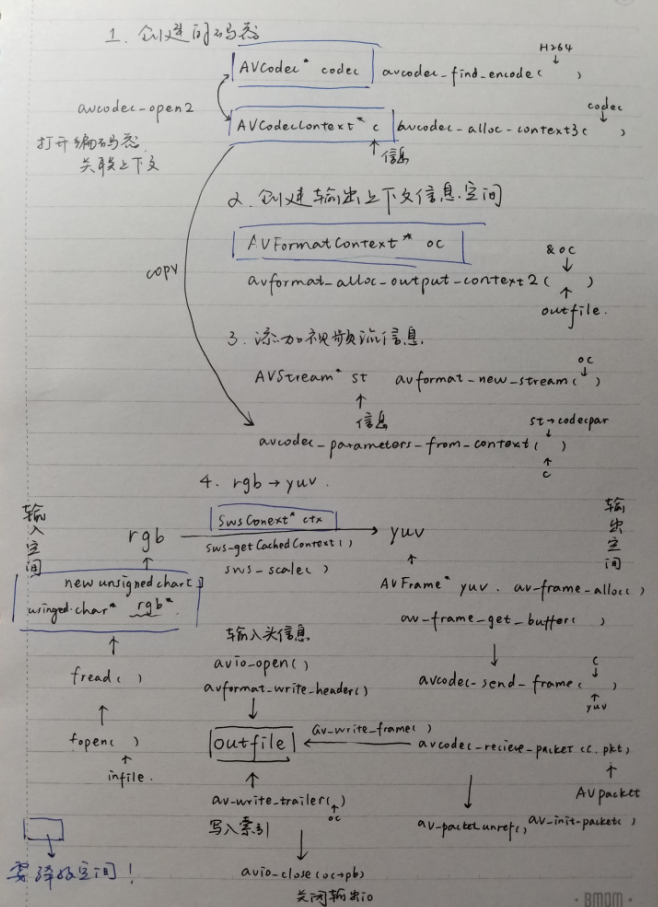 1. 创建编码器
H264
AVCodec* codec avcodec_find_encode( )
avcodec_open2
codec
AVCodecContext* c avcodec_alloc_context3( )
打开编码器
关联上下文
信息
2. 创建输出上下文信息空间
AVFormatContext* oc
&oc
avformat_alloc_output_context2( )
outfile.
copy
3. 添加视频流信息.
oc
AVStream* st avformat_new_stream( )
信息
st→codecpar
avcodec_parameters_from_context( )
c
4. rgb → yuv.
输入空间
rgb
SwsConext* ctx
yuv
输出空间
sws_getCachedContext()
sws_scale()
new unsigned char[]
usinged.char* rgb*.
AVFrame* yuv. av_frame_alloc()
av_frame_get_buffer( )
输入头信息
avio_open()
avformat_write_header()
fread( )
c
avcodec_send_frame( )
yuv
fopen( )
infile.
outfile
av_write_frame( )
avcodec_recieve_packet (c. pkt)
AVpacket
av_write_trailer( )
oc
写入索引
av_packet_unref(, av_init_packet( )
要释放空间!
avio_close(oc→pb)
关闭输出io
BMDM